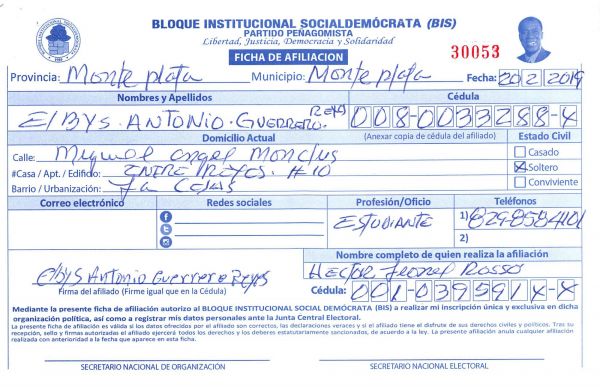 BLOQUE INSTITUCIONAL SOCIALDEMÓCRATA (BIS)
PARTIDO PEÑAGOMISTA
Libertad, Justicia, Democracia y Solidaridad
FICHA DE AFILIACION
30053
Provincia: Monte plata Municipio: Monte plata Fecha: 20/2/2019
Nombres y Apellidos Cédula
ElBYS ANTONIO GUERRERO REYES 008-0033288-4
Domicilio Actual (Anexar copia de cédula del afiliado) Estado Civil
Calle: Miguel angel Monclus Casado
#Casa / Apt. / Edificio: ENTRE REYES #10 Soltero
Barrio / Urbanización: Conviviente
Correo electrónico Redes sociales Profesión/Oficio Teléfonos
ESTUDIANTE 1) 829-858-4101
2)
Nombre completo de quien realiza la afiliación
Elbys Antonio Guerrero Reyes HECTOR Leonel ROSSO
Firma del afiliado (Firme igual que en la Cédula) Cédula: 001-0395914-4
Mediante la presente ficha de afiliación autorizo al BLOQUE INSTITUCIONAL SOCIAL DEMÓCRATA (BIS) a realizar mi inscripción única y exclusiva en dicha
organización política, así como a registrar mis datos personales ante la Junta Central Electoral.
La presente ficha de afiliación es válida si los datos ofrecidos por el afiliado son correctos, las declaraciones veraces y si el titular tiene el disfrute de sus derechos civiles y políticos. Tras su
recepción, sello y firma autorizadas el afiliado ejercerá todos los derechos y los deberes estatutariamente sancionados, de acuerdo a la ley. La presente afiliación anula cualquier afiliación
realizada con anterioridad a la fecha que aparece en esta ficha.
SECRETARIO NACIONAL DE ORGANIZACIÓN SECRETARIO NACIONAL ELECTORAL